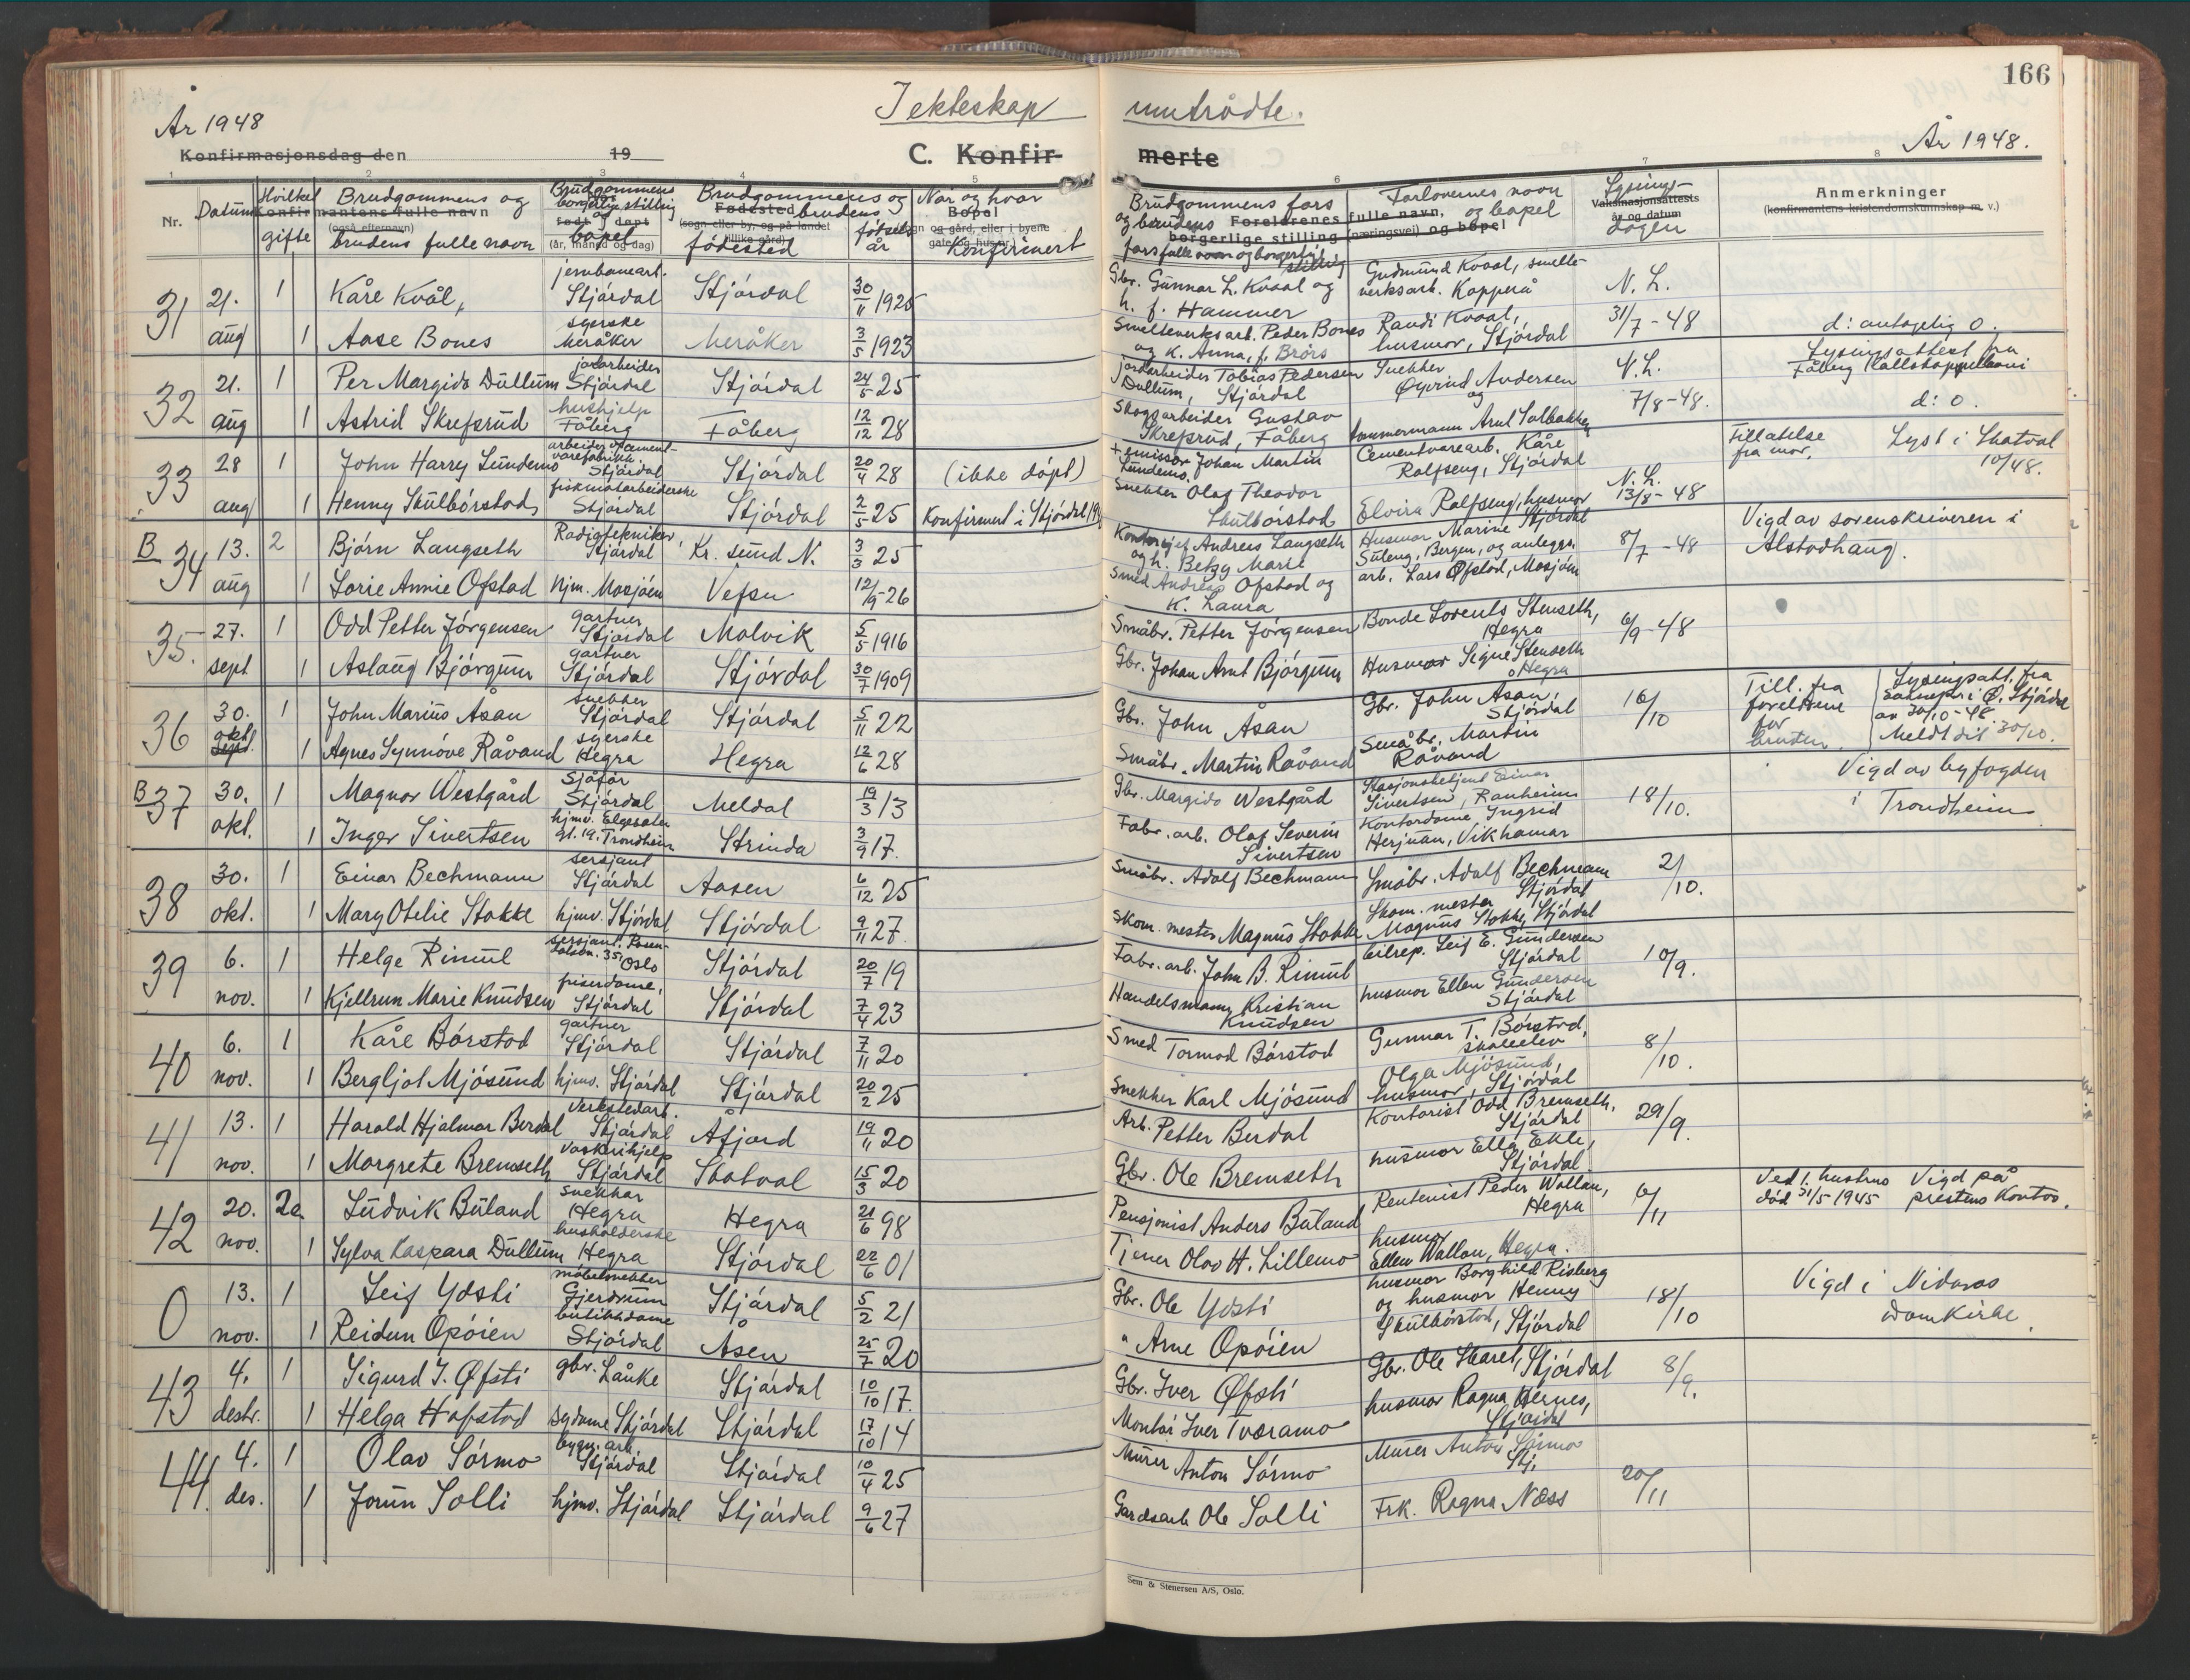 166
I ekteskap inntrådte.
År 1948
År 1948.
Konfirmasjonsdag den 19
C. Konfir- merte
1 2 3 4 5 6 7 8
Nr. Datum Hvilket gifte
Brudgommens og brudens fulle navn
Konfirmantens fulle navn
(også etternavn)
Brudgommens og borgerlige stilling og bopel
født døpt
(år, måned og dag)
Brudgommens og brudens fødested
Fødested
(sogn eller by, og på landet tillike gård)
fötsels år
Når og hvor konfirmert
Bopel
(sogn og gård, eller i byene gate og hus nr.)
Brudgommens fars og brudens fars fulle navn og borgerlig stilling
Foreldrenes fulle navn,
borgerlige stilling (næringsvei) og bopel
Forlovernes navn og bopel
Lysings- dagen
Vaksinasjonsattests år og datum
Anmerkninger
(konfirmantens kristendomskunnskap m. v.)
31 21. aug 1 Kåre Kvål, jernbanearb. Stjördal Stjördal 30/11 1925 Gbr. Gunnar L. Kvaal og h. f. Hammer Gudmund Kvaal, smelteverksarb. Kopperå N. L. 31/7-48
1 Aase Bones syerske Meråker Meråker 3/5 1923 Smelteverksarb. Peder Bones og K. Anna, f. Brörs Randi Kvaal, husmor, Stjördal d: antagelig o.
32 21. aug 1 Per Margido Dullum jordarbeider Stjördal Stjördal 24/5 25 jordarbeider Tobias Pedersen Dullum, Stjördal Snekker Øyvind Andersen og N. L. 7/8-48. Lysingsattest fra Fåberg
1 Astrid Skrefsrud hushjelp Fåberg Fåberg 12/12 28 Skogsarbeider Gustav Skrefsrud, Fåberg tömmermann Arnt Solbakken d: o.
33 28 aug 1 John Harry Lundemo arbeider v/sement-varefabrikk Stjördal Stjördal 20/4 28 (ikke döpt) + emissær Johan Martin Lundemo. Cementvarearb. Kåre Ralfseng, Stjördal N. L. 13/8-48 Tillatelse fra mor. Lyst i Skatval 10/48.
1 Henny Skulbörstad fiskmatarbeiderske Stjördal Stjördal 2/5 25 Konfirmert i Stjördal Snekker Olaf Theodor Skulbörstad Elvira Ralfseng, husmor Stjördal
B 34 13. aug 2 Björn Langseth Radiotekniker, Stjördal Kr. sund N. 3/3 25 Kontorsjef Andreas Langseth og h. Betzy Marie Husmor Marine Suleng, Bergen, og anleggs arb. Lars Øfstad, Mosjöen 8/7-48 Vigd av sorenskriveren i Alstadhaug.
1 Lorie Annie Ofstad hjm. Mosjöen Vefsn 12/9-26 Smed Andreas Ofstad og K. Laura
35. 27. sept 1 Odd Petter Jörgensen gartner Stjördal Malvik 5/5 1916 Småbr. Petter Jörgensen Bonde Lorents Stenseth, Hegra 6/9-48
1 Aslaug Björgum gartner Stjördal Stjördal 30/7 1909 Gbr. Johan Arnt Björgum Husmor Signe Stenseth Hegra
36 30. okt sept. 1 John Marius Åsan snekker Stjördal Stjördal 5/11 22 Gbr. John Åsan Gbr. John Åsan, Stjördal 16/10 Till. fra foreldrene for bruden. Lysingsatt. fra Stjördal av 30/10-48. Meldt dit 30/10.
1 Agnes Synnöve Råvand syerske Hegra Hegra 12/6 28 Småbr. Martin Råvand Småbr. Martin Råvand
B 37 30. okt. 1 Magnar Westgård Sjåfør Stjördal Meldal 19/3 13 Gbr. Margido Westgård Stasjonsbetjent Einar Sivertsen, Ranheim 18/10. Vigd av byfogden i Trondheim
1 Inger Sivertsen hjmv. Elgeseter gt. 19. Trondheim Strinda 3/9 17. Fabr. arb. Olaf Severin Sivertsen Kontordame Ingrid Herjuan, Vikhamar
38 30. okt. 1 Einar Bechmann sersjant Stjördal Aasen 6/12 25 Småbr. Adolf Bechmann Småbr. Adolf Bechmann Stjördal 2/10.
1 Mary Otelie Stokke hjmv. Stjördal Stjördal 9/11 27. Skom. mester Magnus Stokke Skom. mester Magnus Stokke, Stjördal
39 6. nov. 1 Helge Rimul sersjant. 35 Oslo Stjördal 20/7 19 Fabr. arb. John B. Rimul bilrep. Leif E. Gundersen Stjördal 10/9.
1 Kjellrun Marie Knudsen friserdame, Stjördal Stjördal 7/4 23 Handelsmann Kristian Knudsen husmor Ellen Gundersen Stjördal
40 6. nov. 1 Kåre Börstad gartner Stjördal Stjördal 7/11 20 Smed Tormod Börstad Gunnar T. Börstad, skoleelev 8/10.
1 Bergljot Mjösund hjmv. Stjördal Stjördal 20/2 25 Snekker Karl Mjösund Olga Mjösund, husmor, Stjördal
41 13. nov. 1 Harald Hjalmar Berdal Verkstedarb. Stjördal Åfjord 19/11 20 Arb. Petter Berdal Kontorist Odd Bremseth, Stjördal 29/9.
1 Margrete Bremseth Vaskerihjelp Stjördal Skatval 15/3 20 Gbr. Ole Bremseth husmor Ella Ekle, Stjördal
42 20. nov. 2e Ludvik Buland snekker Hegra Hegra 21/6 98 Pensjonist Anders Buland Rentenist Peder Wollan, Hegra 6/11 Ved 1. hustrus död 31/5 1945 Vigd på prestens kontor.
1 Sylva Kaspara Dullum husholderske Hegra Stjördal 22/6 01 Tjener Olav H. Lillemo husmor Ellen Wollan, Hegra.
0 13. nov. 1 Leif Ydsti möbelsnekker Gjerdrum Stjördal 5/2 21 Gbr. Ole Ydsti husmor Borghild Risberg og husmor Henny Skulbörstad, Stjördal 18/10 Vigd i Nidaros domkirke.
1 Reidun Opöien butikkdame Stjördal Åsen 25/7 20 " Arne Opöien
43 4. desbr. 1 Sigurd I. Øfsti gbr. Lånke Stjördal 10/10 17. Gbr. Iver Øfsti Gbr. Ole Skaret, Stjördal 8/9.
1 Helga Hofstad sydame Stjördal Stjördal 17/10 14 Montör Iver Tværamo husmor Ragna Hernes, Stjördal
44. 4. des. 1 Olav Sörmo bygn. arb. Stjördal Stjördal 10/4 25 Murer Anton Sörmo Murer Anton Sörmo Stj. 20/11
1 Jorun Solli hjmv. Stjördal Stjördal 9/6 27 Gardsarb Ole Solli Frk. Ragna Næss
Sem & Stenersen A/S, Oslo.